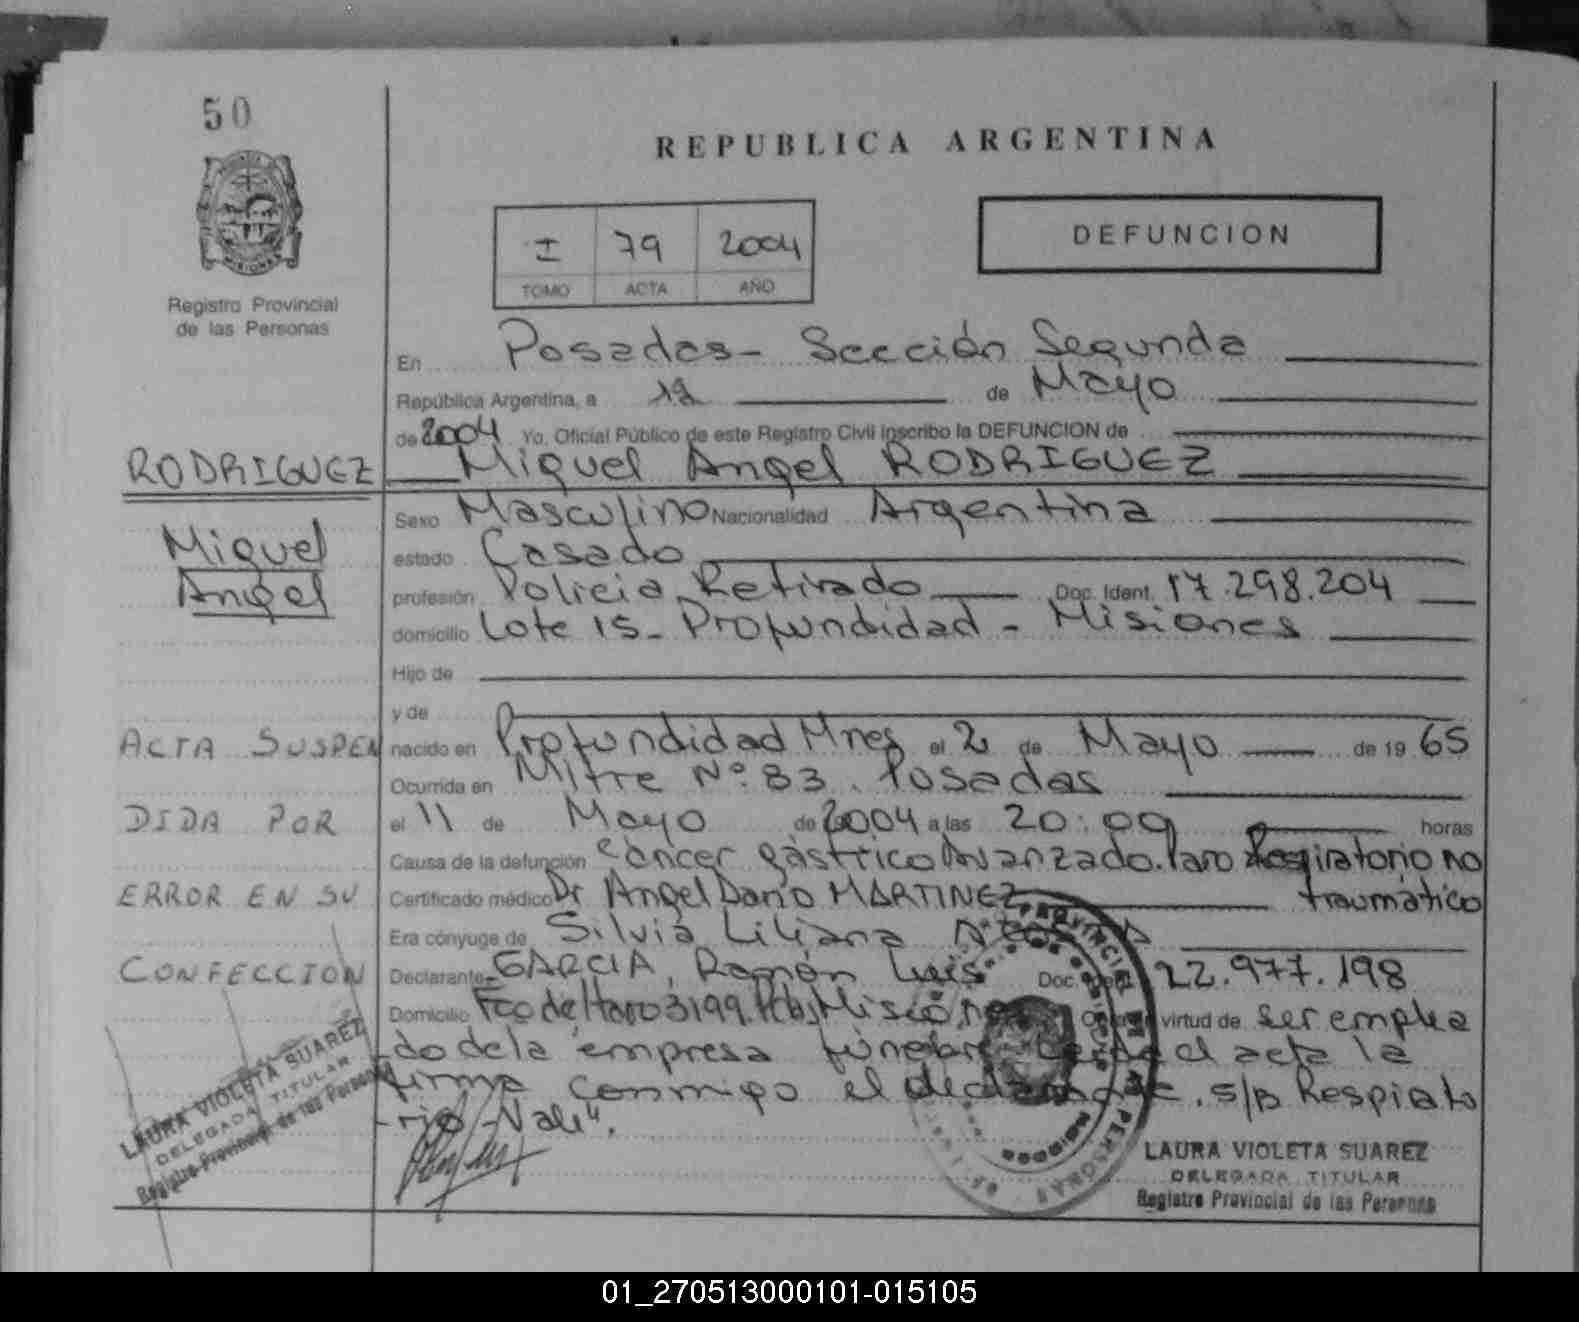 50
REPUBLICA ARGENTINA
I 79 2004
TOMO ACTA AÑO
DEFUNCION
Registro Provincial
de las Personas
En Posadas - Sección Segunda
República Argentina, a 12 de Mayo
de 2004 Yo, Oficial Público de este Registro Civil inscribo la DEFUNCION de
RODRIGUEZ
Miguel Angel RODRIGUEZ
Miguel
Angel
Sexo Masculino Nacionalidad Argentina
estado Casado
profesión Policia Retirado Doc. Ident. 17.298.204
domicilio Lote 15 - Profundidad - Misiones
Hijo de
y de
nacido en Profundidad Mnes el 2 de Mayo de 19 65
Ocurrida en Mitre Nº: 83. Posadas
el 11 de Mayo de 2004 a las 20:00 horas
Causa de la defunción Cáncer gástrico Avanzado. Paro Respiratorio no
traumático
Certificado médico Dr Angel Dario MARTINEZ
Era cónyuge de Silvia Liliana
Declarante GARCIA, Ramón Luis Doc. 22.977.198
Domicilio Fco de Haro 3199. Misiones virtud de ser emplea
do de la empresa fúnebre el acta la
firma conmigo el declarante. S/B Respirato
rio - Vale".
ACTA SUSPEN
DIDA POR
ERROR EN SU
CONFECCION
LAURA VIOLETA SUAREZ
DELEGADA TITULAR
Registro Provincial de las Personas
LAURA VIOLETA SUAREZ
DELEGADA TITULAR
Registro Provincial de las Personas
01_270513000101-015105